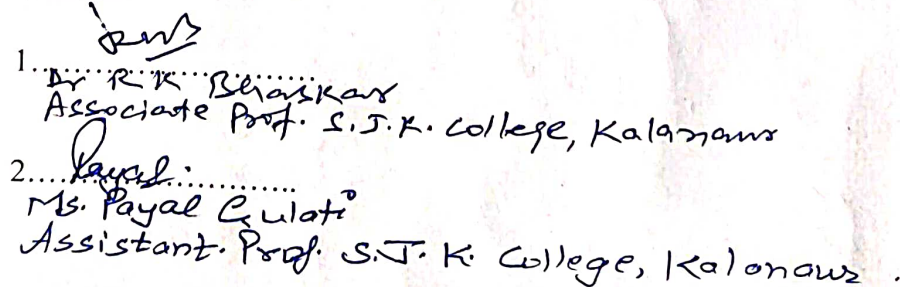 1....................
Dr R K Bhaskar
Associate Prof. S.J.K. College, Kalanaur
2....Payal................
Ms. Payal Gulati
Assistant. Prof. S.J.K. College, Kalanaur.